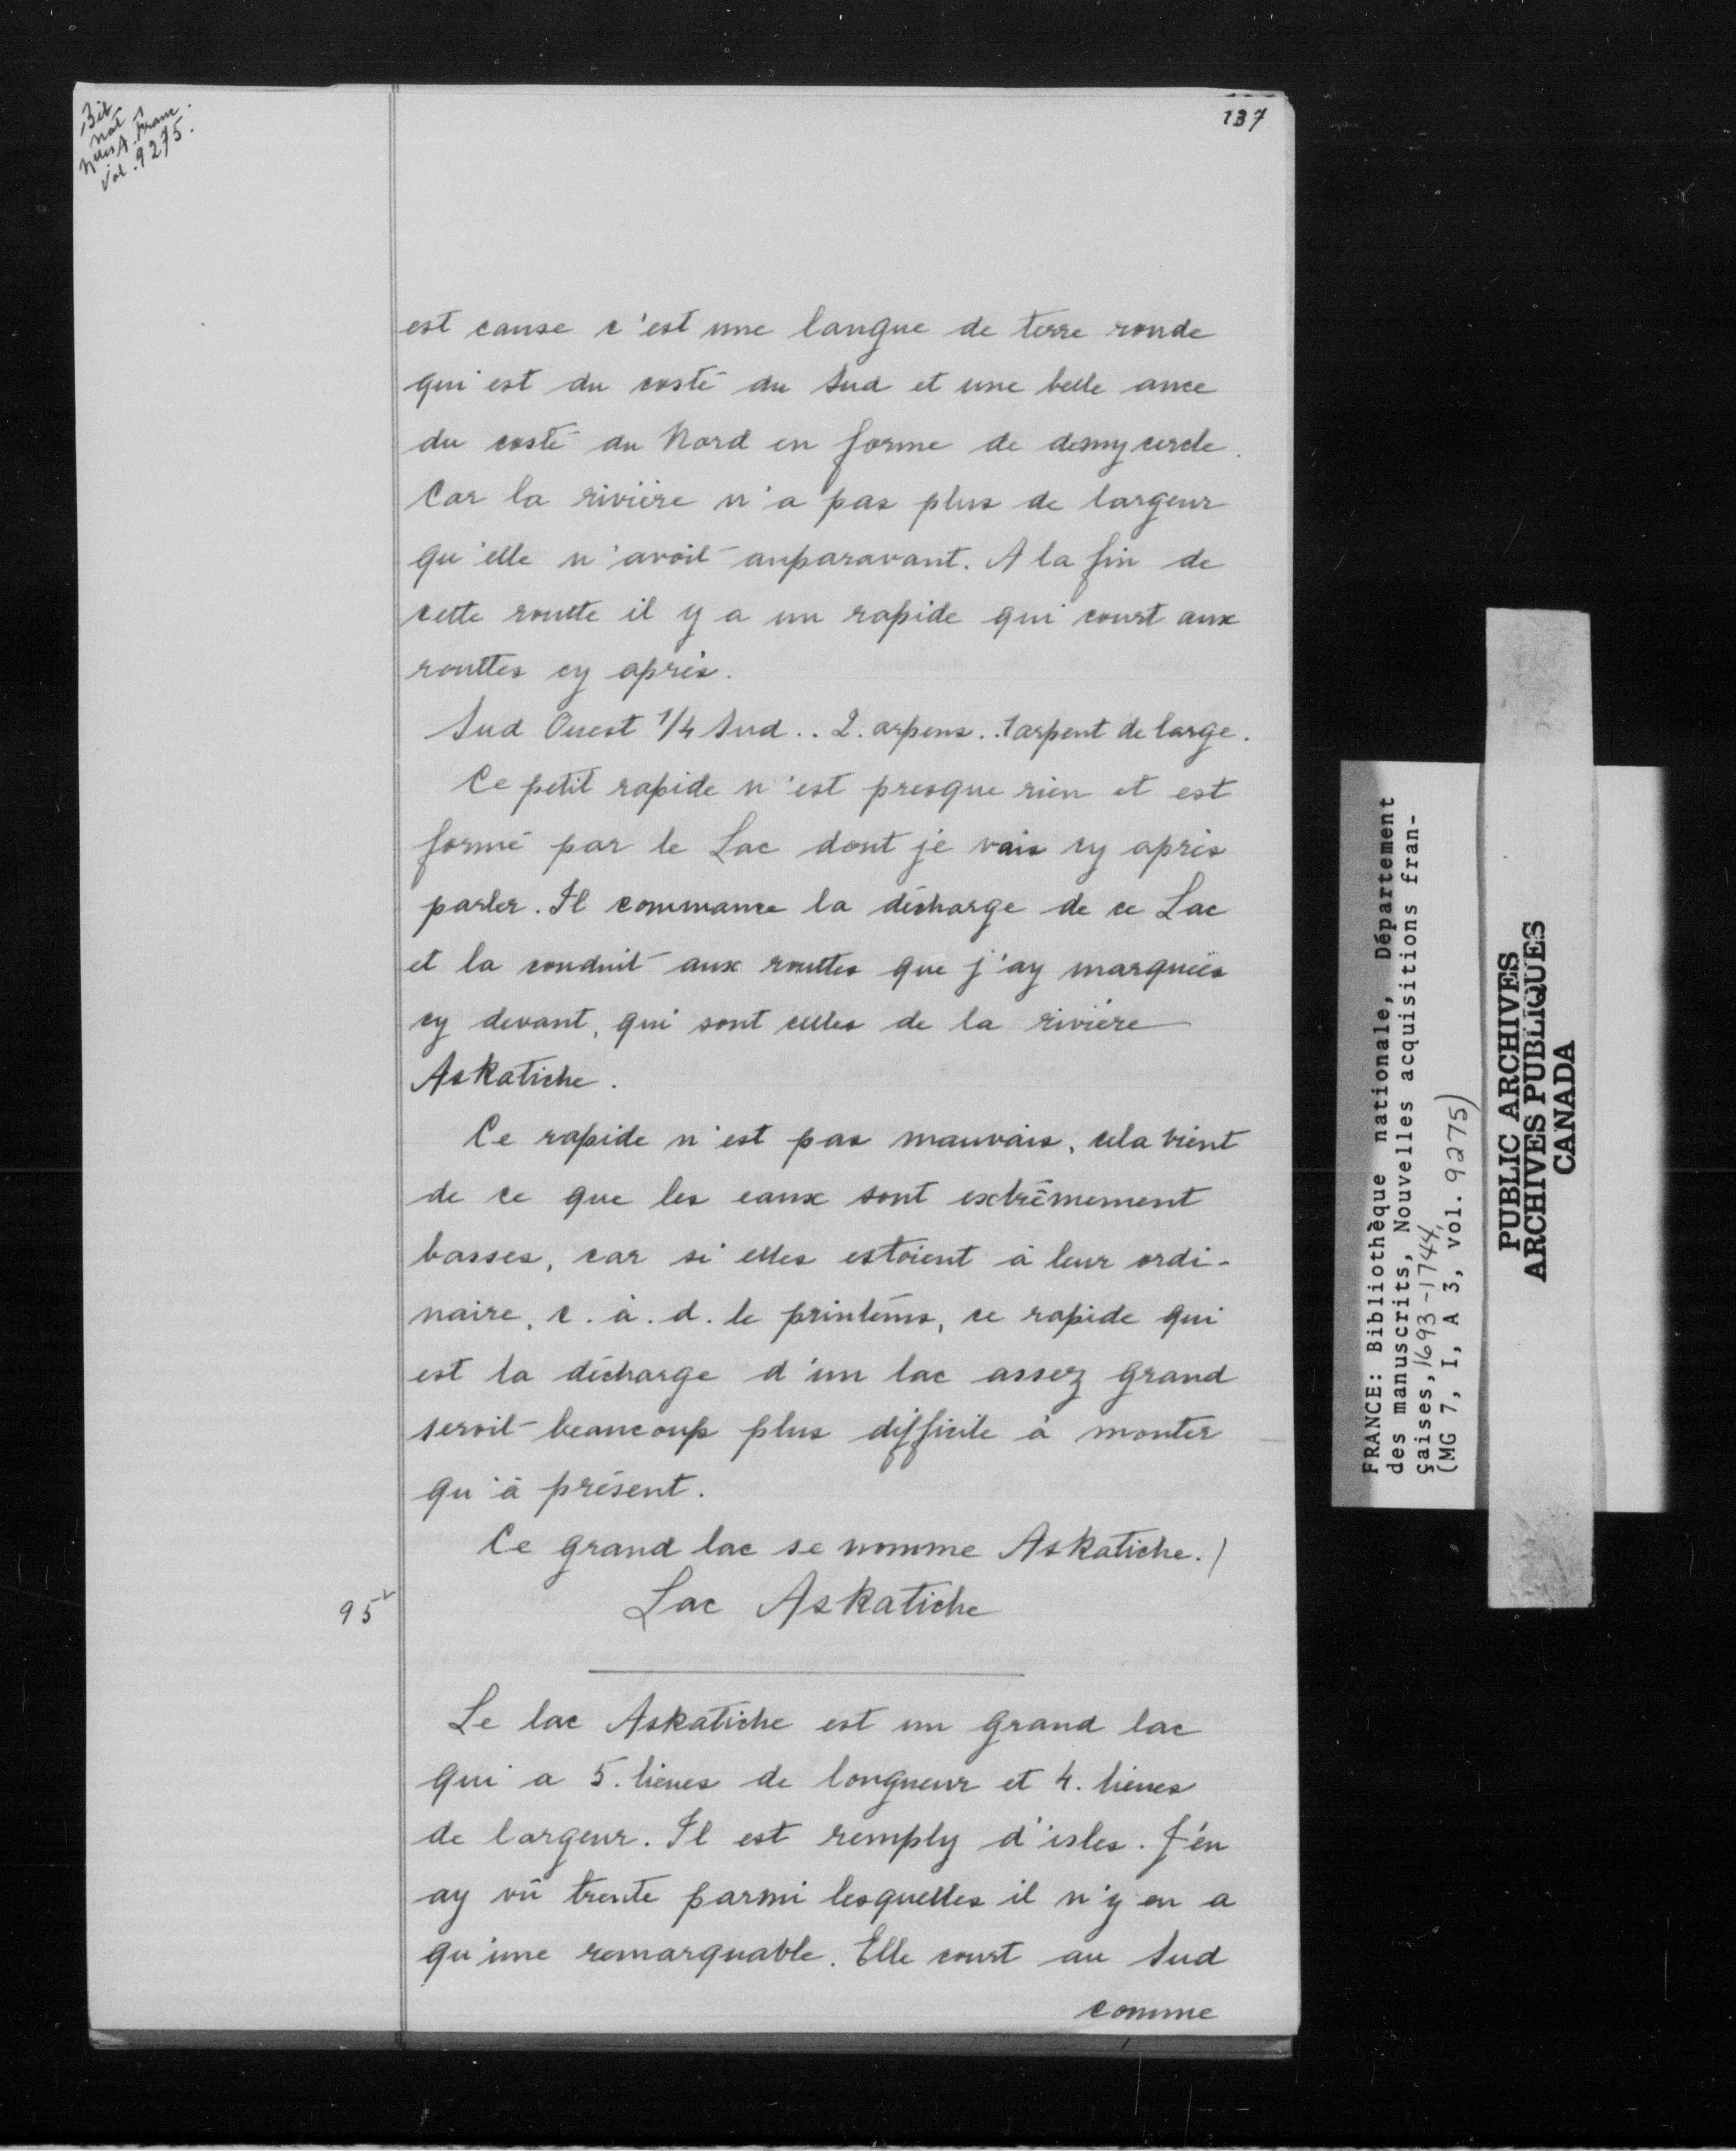 Bib
nat
Nelles A. Franc.
Vol. 9275.
137
est cause c'est une langue de terre ronde
qui est du costé du Sud et une belle ance
du costé du Nord en forme de demy cercle.
Car la rivière n'a pas plus de largeur
qu'elle n'avoit auparavant. A la fin de
cette routte il y a un rapide qui court aux
routtes cy après.
Sud Ouest 1/4 Sud .. 2. arpens .. 1 arpent de large.
Ce petit rapide n'est presque rien et est
formé par le Lac dont je vais cy après
parler. Il commance la décharge de ce Lac
et la conduit aux routtes que j'ay marquées
cy devant, qui sont celles de la rivière
Askatiche.
Ce rapide n'est pas mauvais, cela vient
de ce que les eaux sont extrêmement
basses, car si elles estoient à leur ordi-
naire, c. à. d. le printems, ce rapide qui
est la décharge d'un lac assez grand
seroit beaucoup plus difficile à monter
qu'à présent.
Ce grand lac se nomme Askatiche.)
95
Lac Askatiche
Le lac Askatiche est un grand lac
qui a 5. lieues de longueur et 4. lieues
de largeur. Il est remply d'isles. J'en
ay vû trente parmi lesquelles il n'y en a
qu'une remarquable. Elle court au Sud
comme
FRANCE: Bibliothèque nationale, Département
des manuscrits, Nouvelles acquisitions fran-
çaises, 1693-1744
(MG 7, I, A 3, vol. 9275)
PUBLIC ARCHIVES
ARCHIVES PUBLIQUES
CANADA